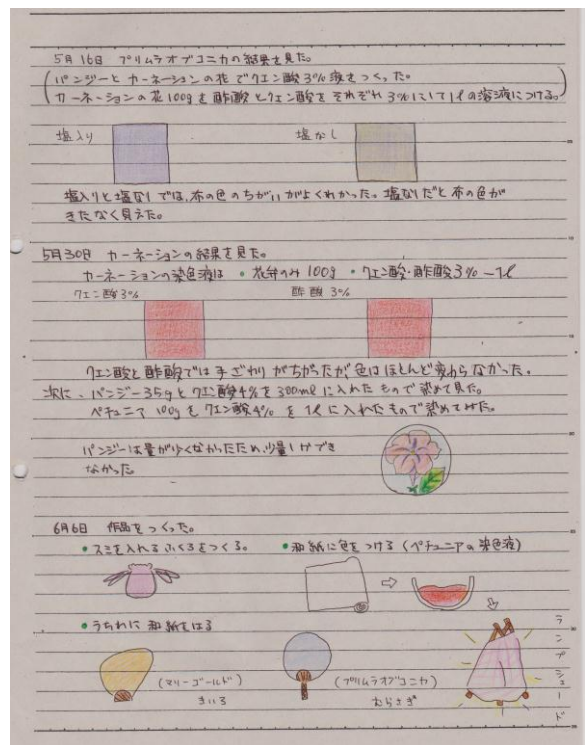 5月16日 プリムラオブコニカの結果を見た。
(パンジーとカーネーションの花でクエン酸3%液をつくった。
カーネーションの花100gを酢酸とクエン酸をそれぞれ3%にして1ℓの溶液につける。)
塩入り 塩なし
塩入りと塩なしでは、布の色のちがいがよくわかった。塩なしだと布の色が
きたなく見えた。
5月30日 カーネーションの結果を見た。
カーネーションの染色液は •花弁のみ100g •クエン酸・酢酸3% ー1ℓ
クエン酸3% 酢酸3%
クエン酸と酢酸では手ざわりがちがったが色はほとんど変わらなかった。
次に、パンジー35gとクエン酸4%を300mlに入れたもので染めて見た。
ペチュニア100gをクエン酸4%を1ℓに入れたもので染めてみた。
パンジーは量が少くなかったため、少量しかでき
なかった
6月6日 作品をつくった。
•スミを入れるふくろをつくる。 •和紙に色をつける(ペチュニアの染色液)
•うちわに和紙をはる
(マリーゴールド)
きいろ
(プリムラオブコニカ)
むらさき
ランプシェード